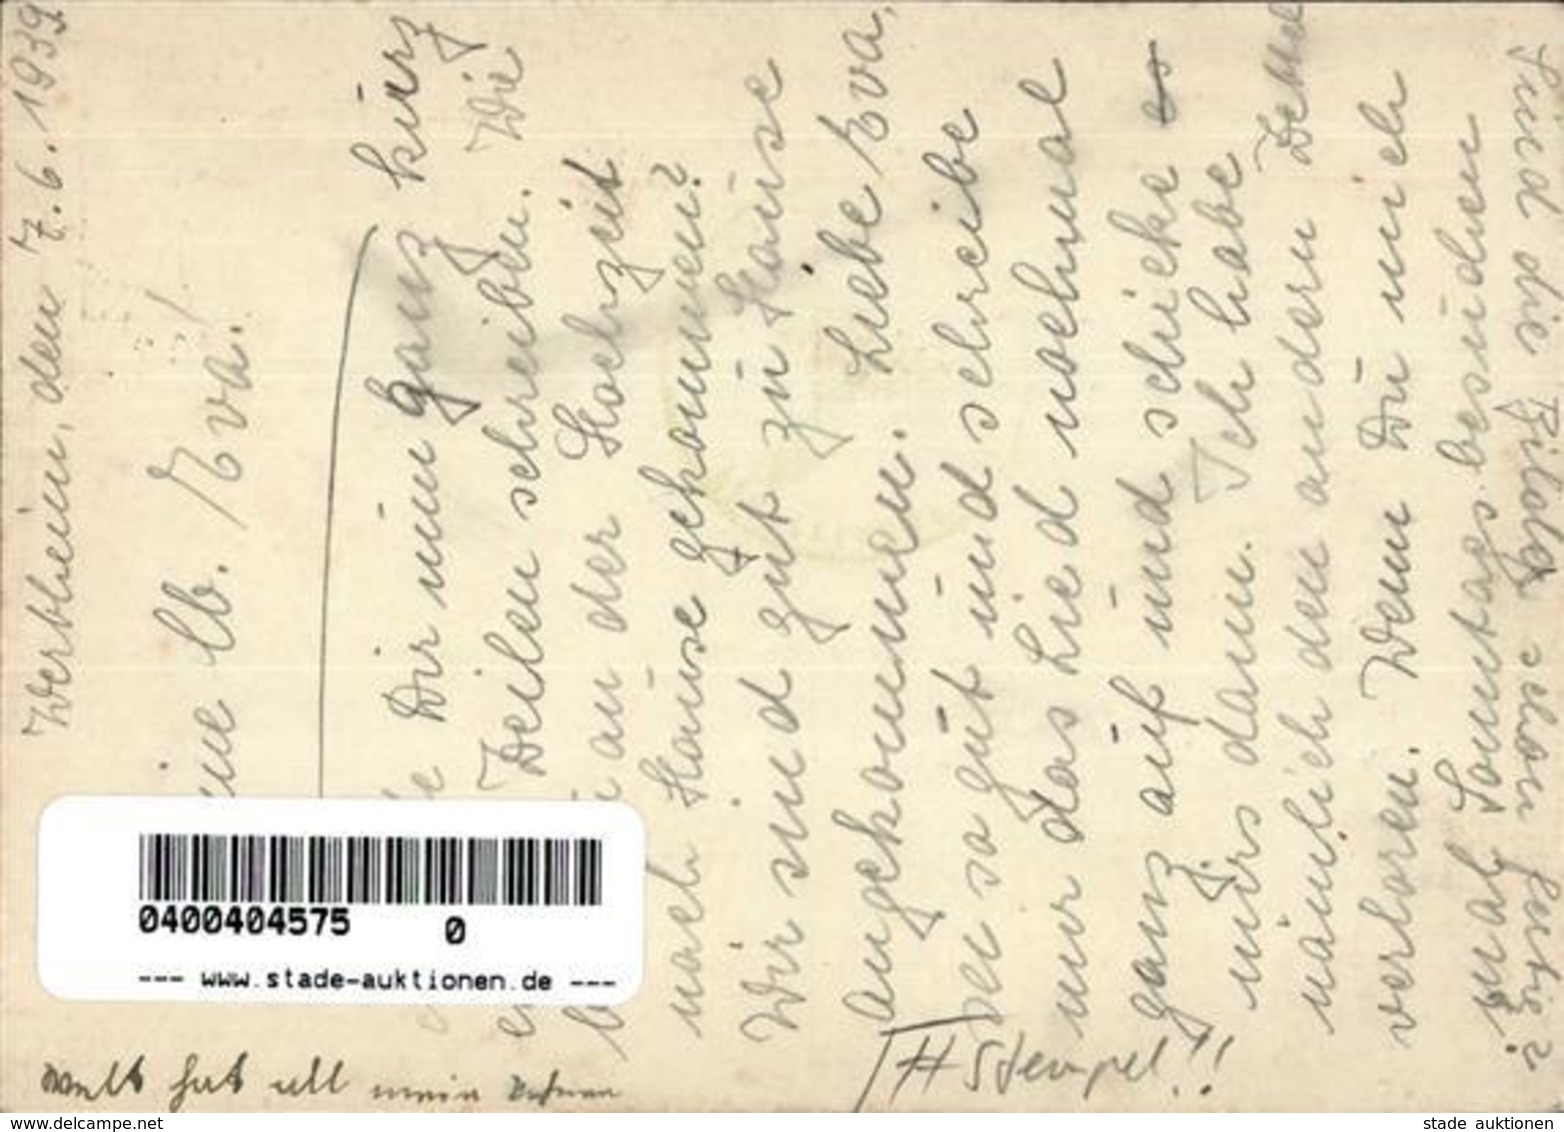 Werbhein, den 7.6.1939
lb. Eva!
Dir nun ganz kurz
Zeilen schreiben. Wie
an der Hochzeit
nach Hause gekommen?
Wir sind gut zu Hause
angekommen. Liebe Eva,
sei so gut und schreibe
mir das Lied nochmal
ganz auf und schicke es
mirs dann. Ich habe
nämlich den andern Zettel
verloren. Wenn Du mich
mal Sonntags besuchen
Sind die Bilder schon fertig?
Stempel!!
0400404575 0
--- www.stade-auktionen.de ---
www.delcampe.net
stade auktionen